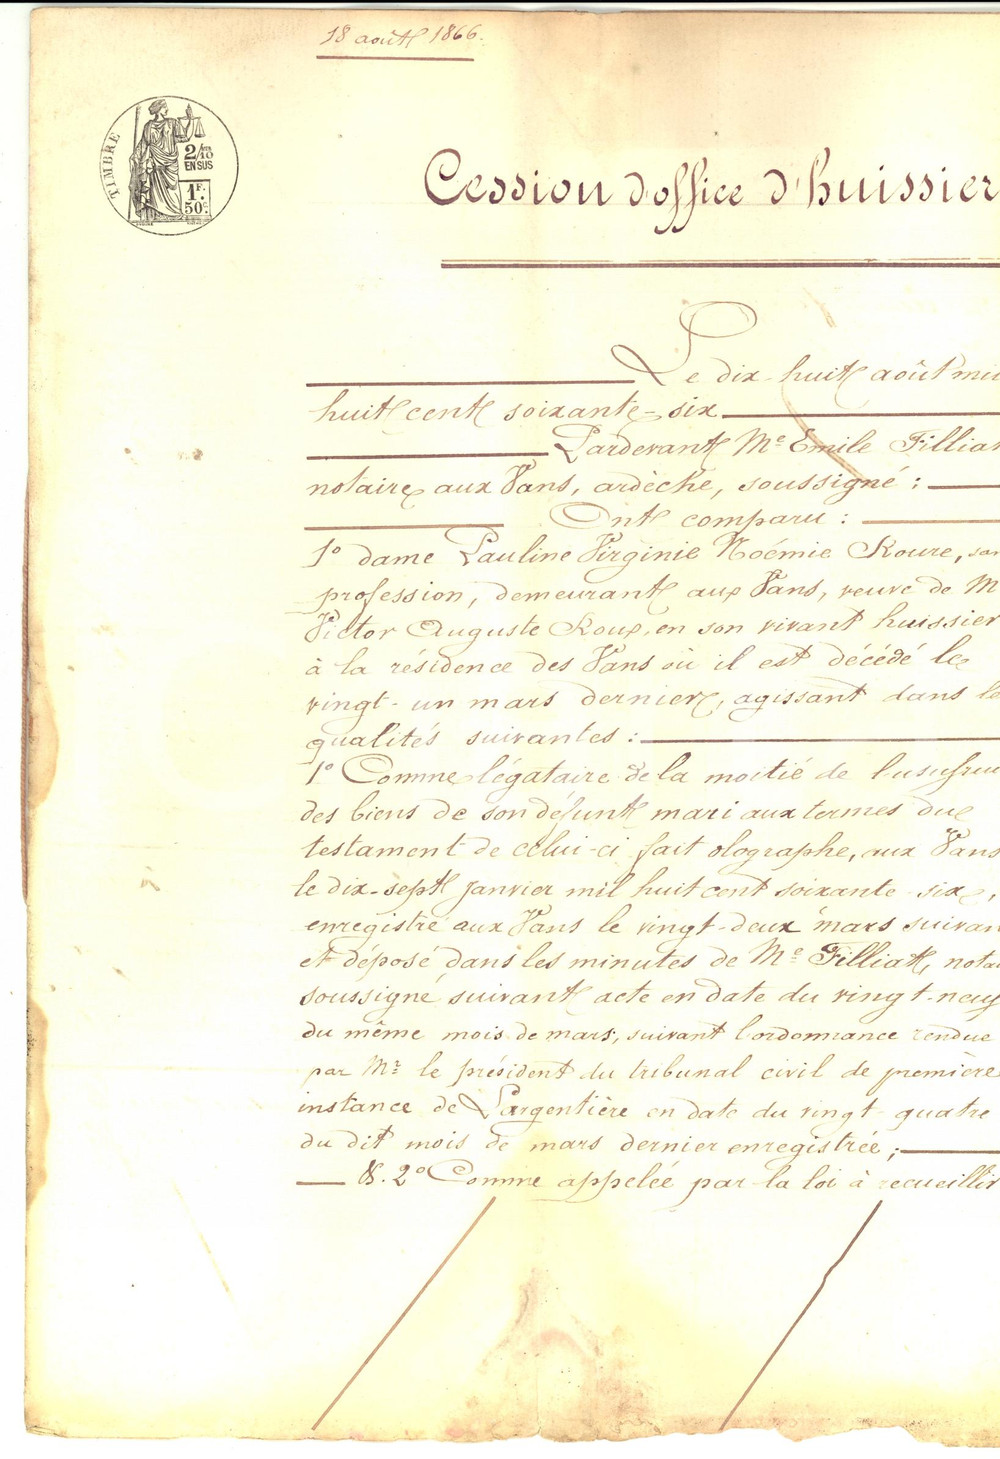 18 août 1866.
TIMBRE
2/10
EN SUS
1F.
50c.
Cession d'office d'huissier
Le dix-huit août mil
huit cent soixante-six
Pardevant Me Emile Filliat
notaire aux Vans, ardèche, soussigné :
Ont comparu :
1° dame Pauline Virginie Noémie Roure, san
profession, demeurant aux Vans, veuve de M
Victor Auguste Roux, en son vivant huissier
à la résidence des Vans où il est décédé le
vingt-un mars dernier, agissant dans le
qualités suivantes :
1° Comme légataire de la moitié de l'usufrui
des biens de son défunt mari aux termes du
testament de celui-ci fait olographe, aux Vans
le dix-sept janvier mil huit cent soixante-six,
enregistré aux Vans le vingt-deux mars suivan
et déposé dans les minutes de Me Filliat, nota
soussigné suivant acte en date du vingt-neuf
du même mois de mars, suivant l'ordonnance rendue
par Mr le président du tribunal civil de première
instance de Largentière en date du vingt-quatre
du dit mois de mars dernier enregistrée ;
&. 2° Comme appelée par la loi à recueillir